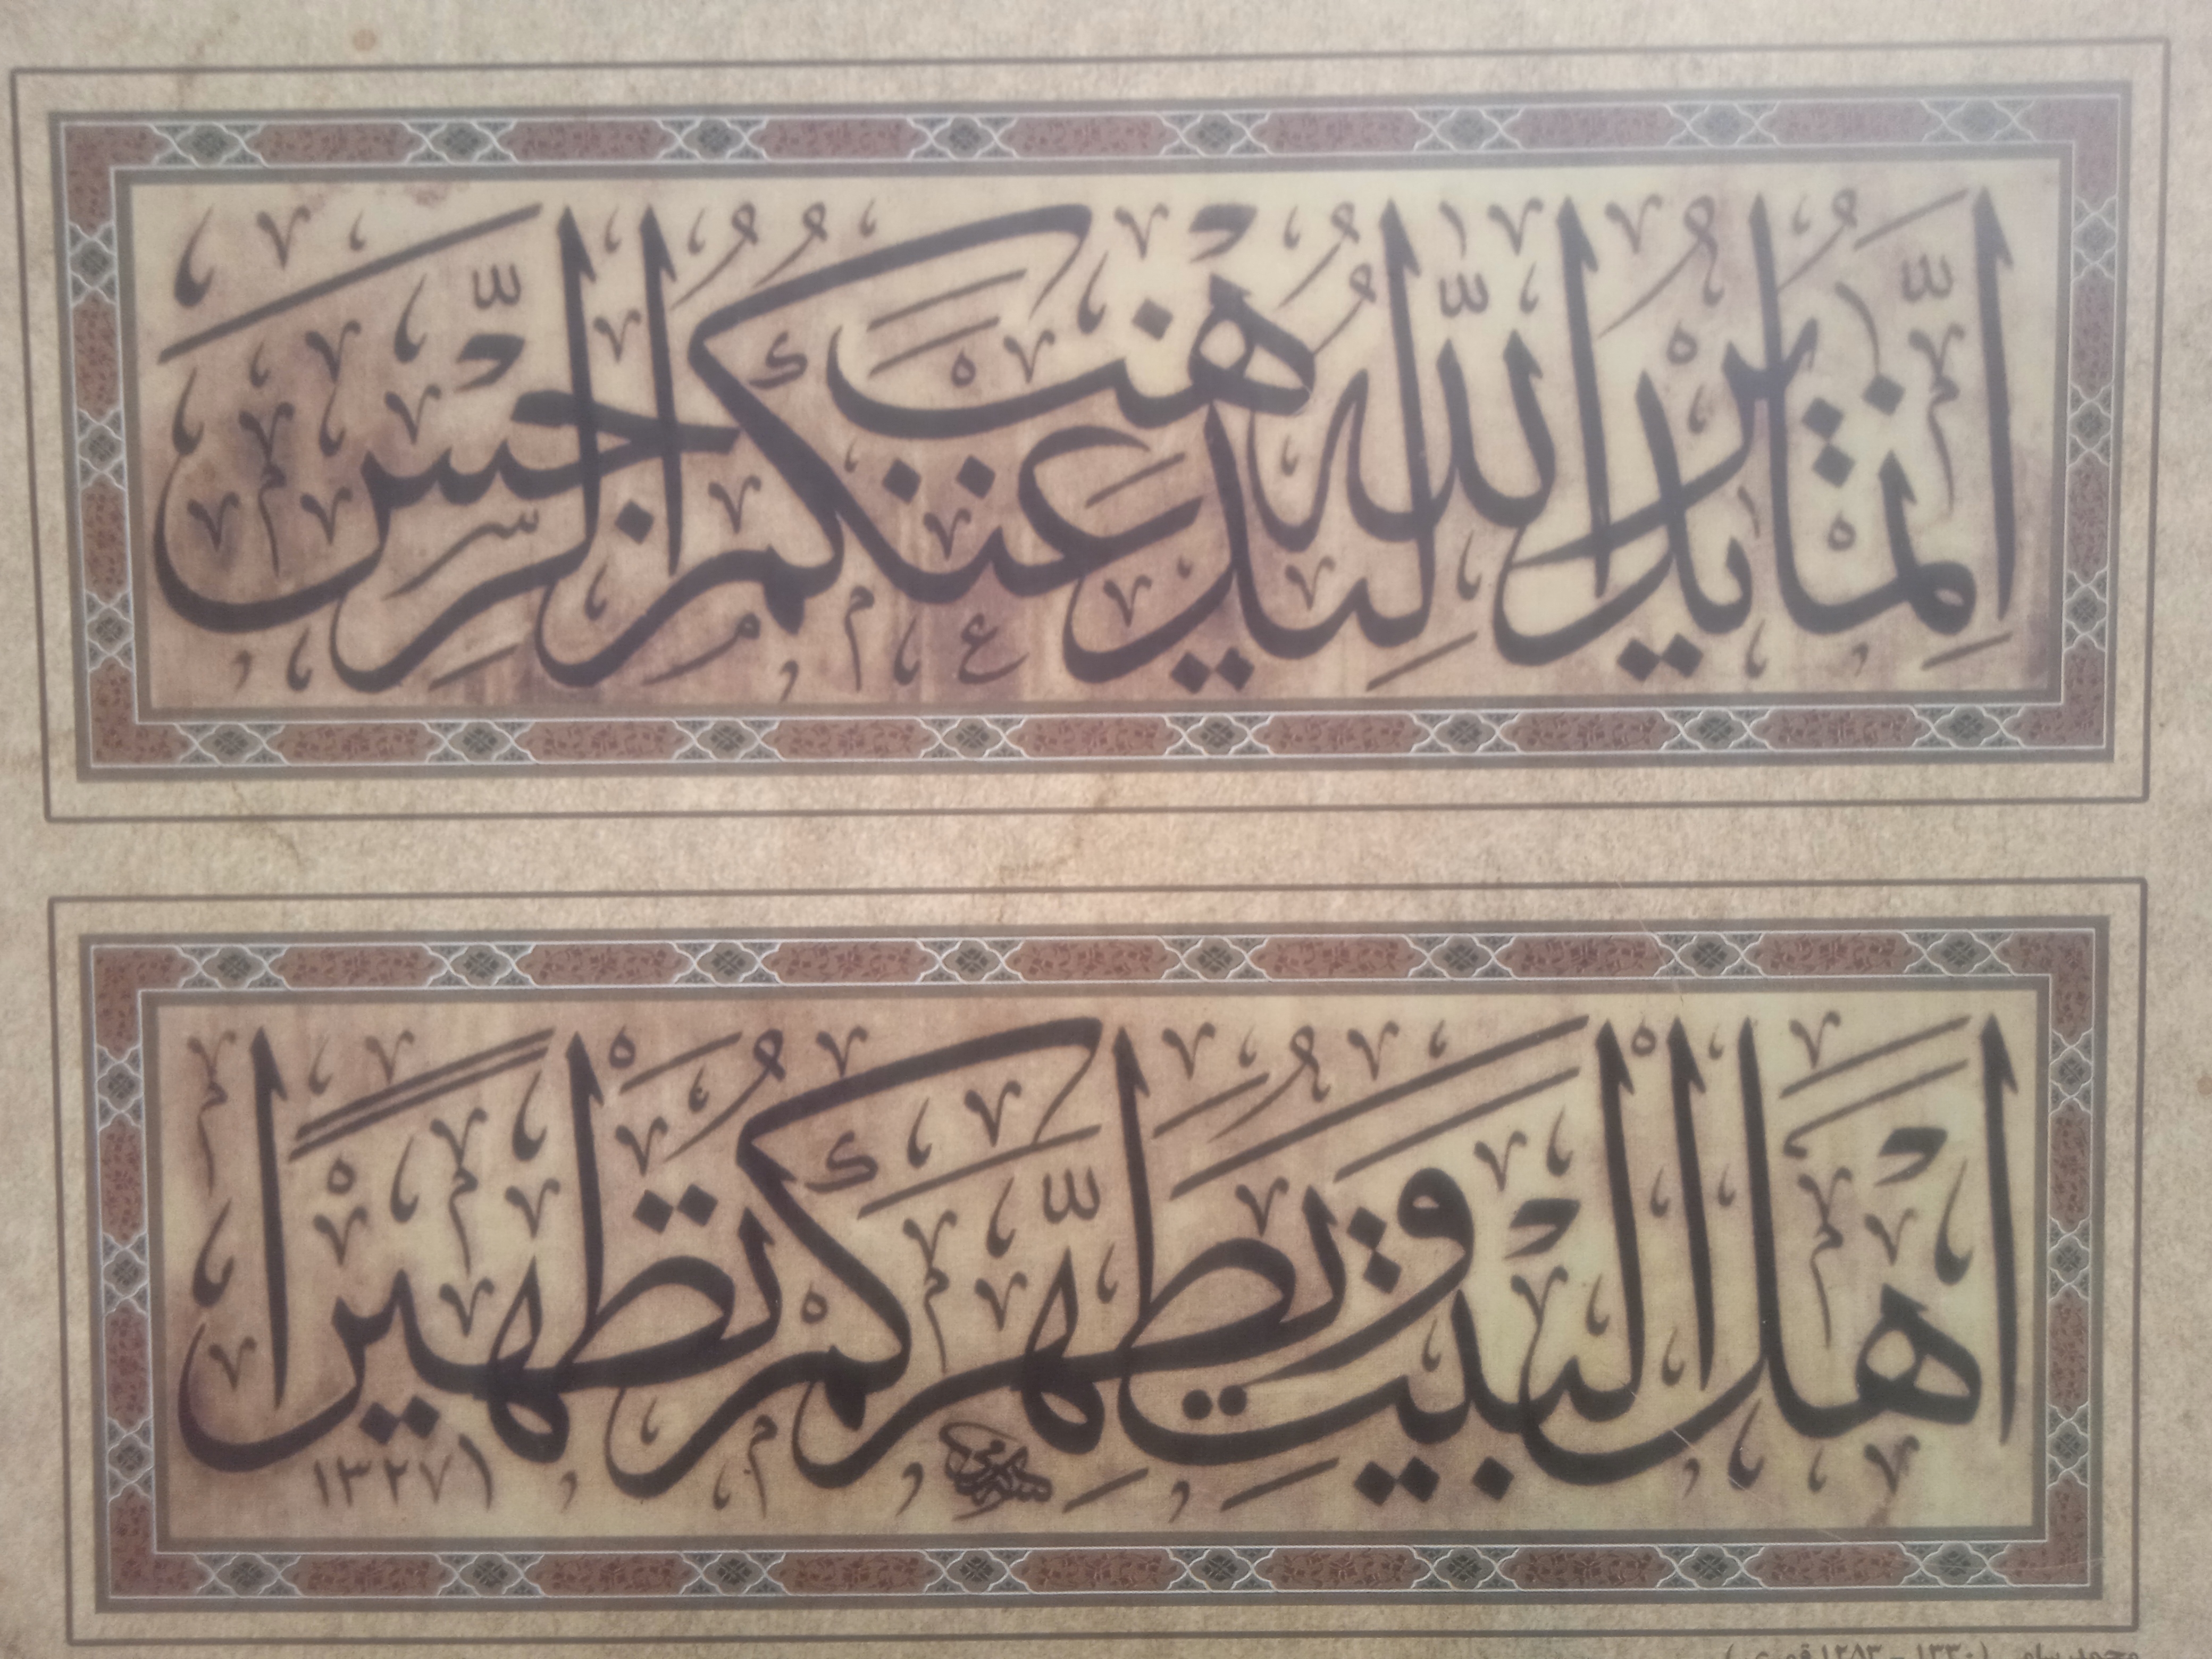 اِنَّمَا يُرِيدُ اللّٰهُ لِيُذْهِبَ عَنْكُمُ الرِّجْسَ
اَهْلَ الْبَيْتِ وَيُطَهِّرَكُمْ تَطْهِيرًا
١٣٢٧
(١٢٥٣ - ١٣٣٠